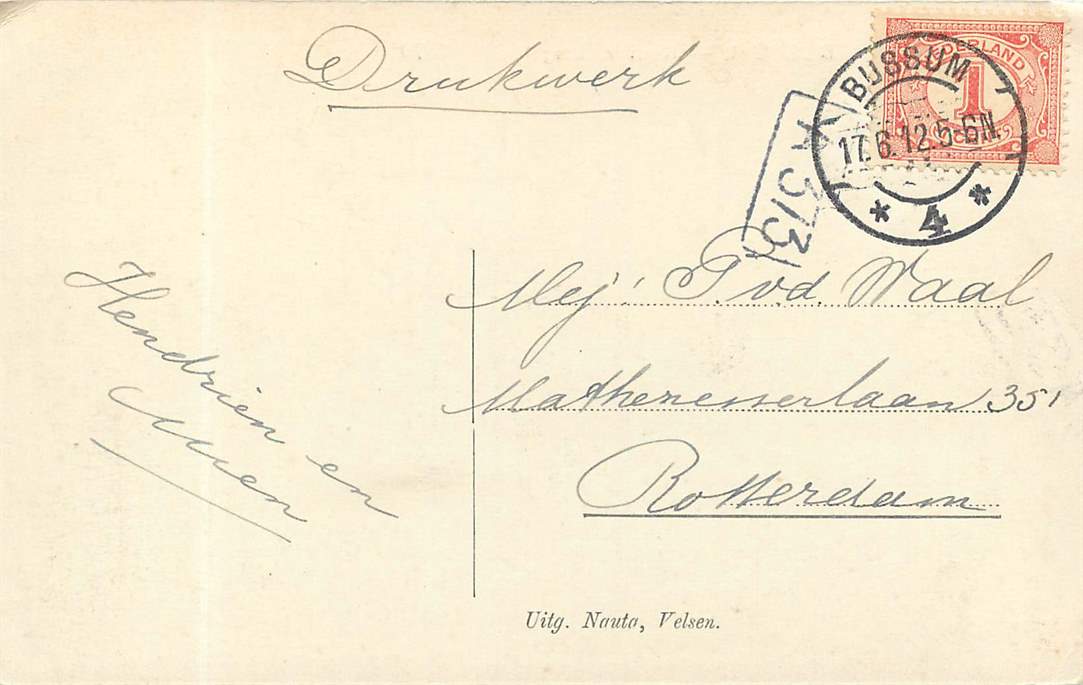 Drukwerk
NEDERLAND
1
CENT
BUSSUM
17.6.12.5-6N.
* 4 *
Mej: P. v.d. Waal
Mathenesserlaan 351
Rotterdam
Hendrien en
Mien
Uitg. Nauta, Velsen.